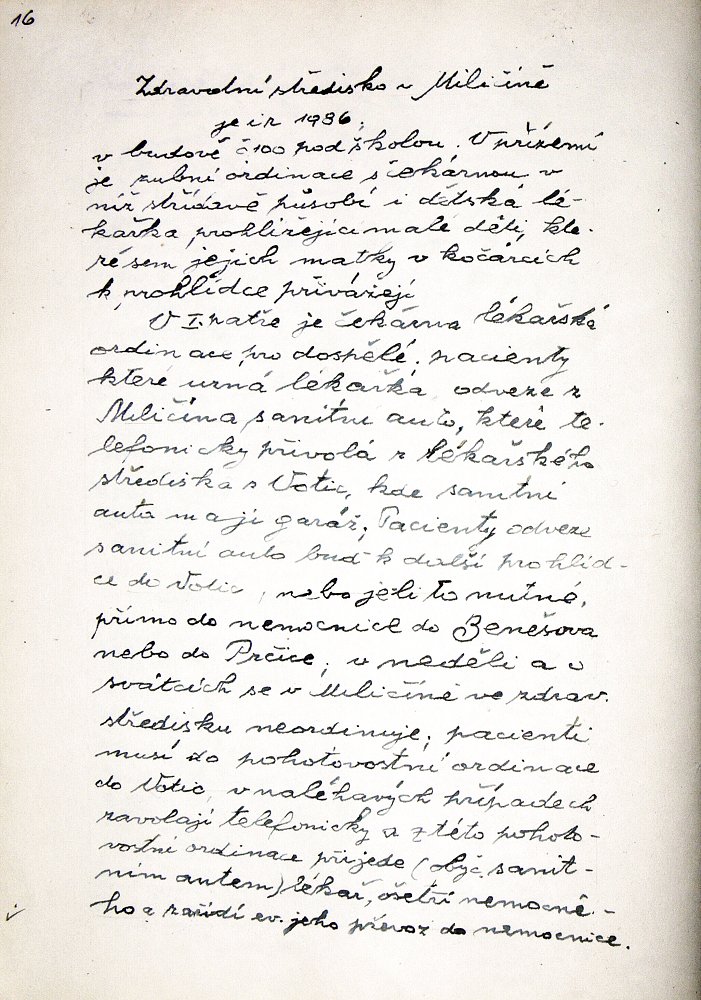 16
Zdravotní středisko v Miličíně
je i r 1986,
v budově č 100 pod školou. V přízemí
je zubní ordinace s čekárnou v
níž střídavě působí i dětská lé-
kařka, prohlížející malé děti, kte-
ré sem jejich matky v kočárcích
k prohlídce přivážejí
V I. patře je čekárna lékařská
ordinace pro dospělé. pacienty
které uzná lékařka odveze z
Miličína sanitní auto, které te-
lefonicky přivolá z lékařského
střediska z Votic, kde sanitní
auta mají garáž; Pacienty odveze
sanitní auto buď k další prohlíd-
ce do Votic, nebo jeli to nutné,
přímo do nemocnice do Benešova
nebo do Prčice; v neděli a o
svátcích se v Miličíně ve zdrav.
středisku neordinuje; pacienti
musí do pohotovostní ordinace
do Votic, v naléhavých případech
zavolají telefonicky a z této pohoto-
vostní ordinace přijede (obyč. sanit-
ním autem) lékař, ošetří nemocné-
ho a zařídí ev. jeho převoz do nemocnice.